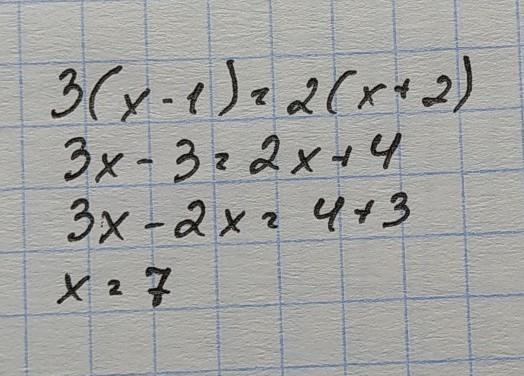 3(x-1)=2(x+2)
3x-3=2x+4
3x-2x=4+3
x=7